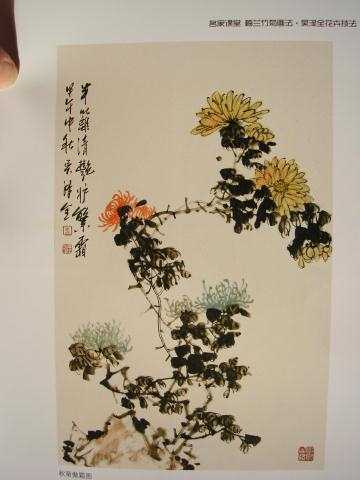 名家课堂 梅兰竹菊画法·吴泽全花卉技法
半籬清艷妒繁霜
甲午中秋吴泽全
秋菊傲霜图